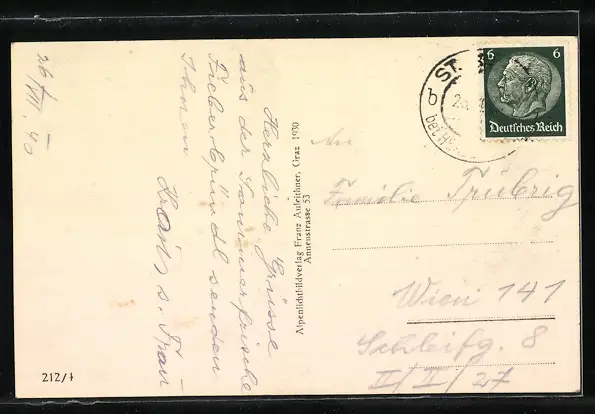 26/VII. 40
Herzliche Grüsse
aus der Sommerfrische
senden
Ihnen
u. Frau
Alpenlichtbildverlag Franz Auleithner, Graz 1930
Annenstrasse 53
212/1
ST.
b
6 6
Deutsches Reich
An
Familie Trübrig
Wien 141
Schleifg. 8
II/II/27